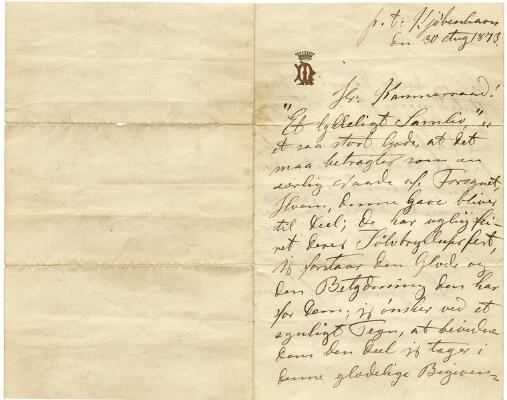 p. t. Kjöbenhavn
den 30 Aug 1873.
Hr. Kammerraad!
"Et lykkeligt Samliv" er
et saa stort Gode, at det
maa betragtes som en
særlig Naade af Forsynet,
Hvem, denne Gave bliver
til Deel; De har nylig fei-
ret Deres Sölvbryllupsfest,
jeg forstaar den Glæde og
den Betydning den har
for Dem; jeg ønsker ved et
synligt Tegn, at bevidne
Dem den Deel jeg tager i
denne glædelige Begiven-